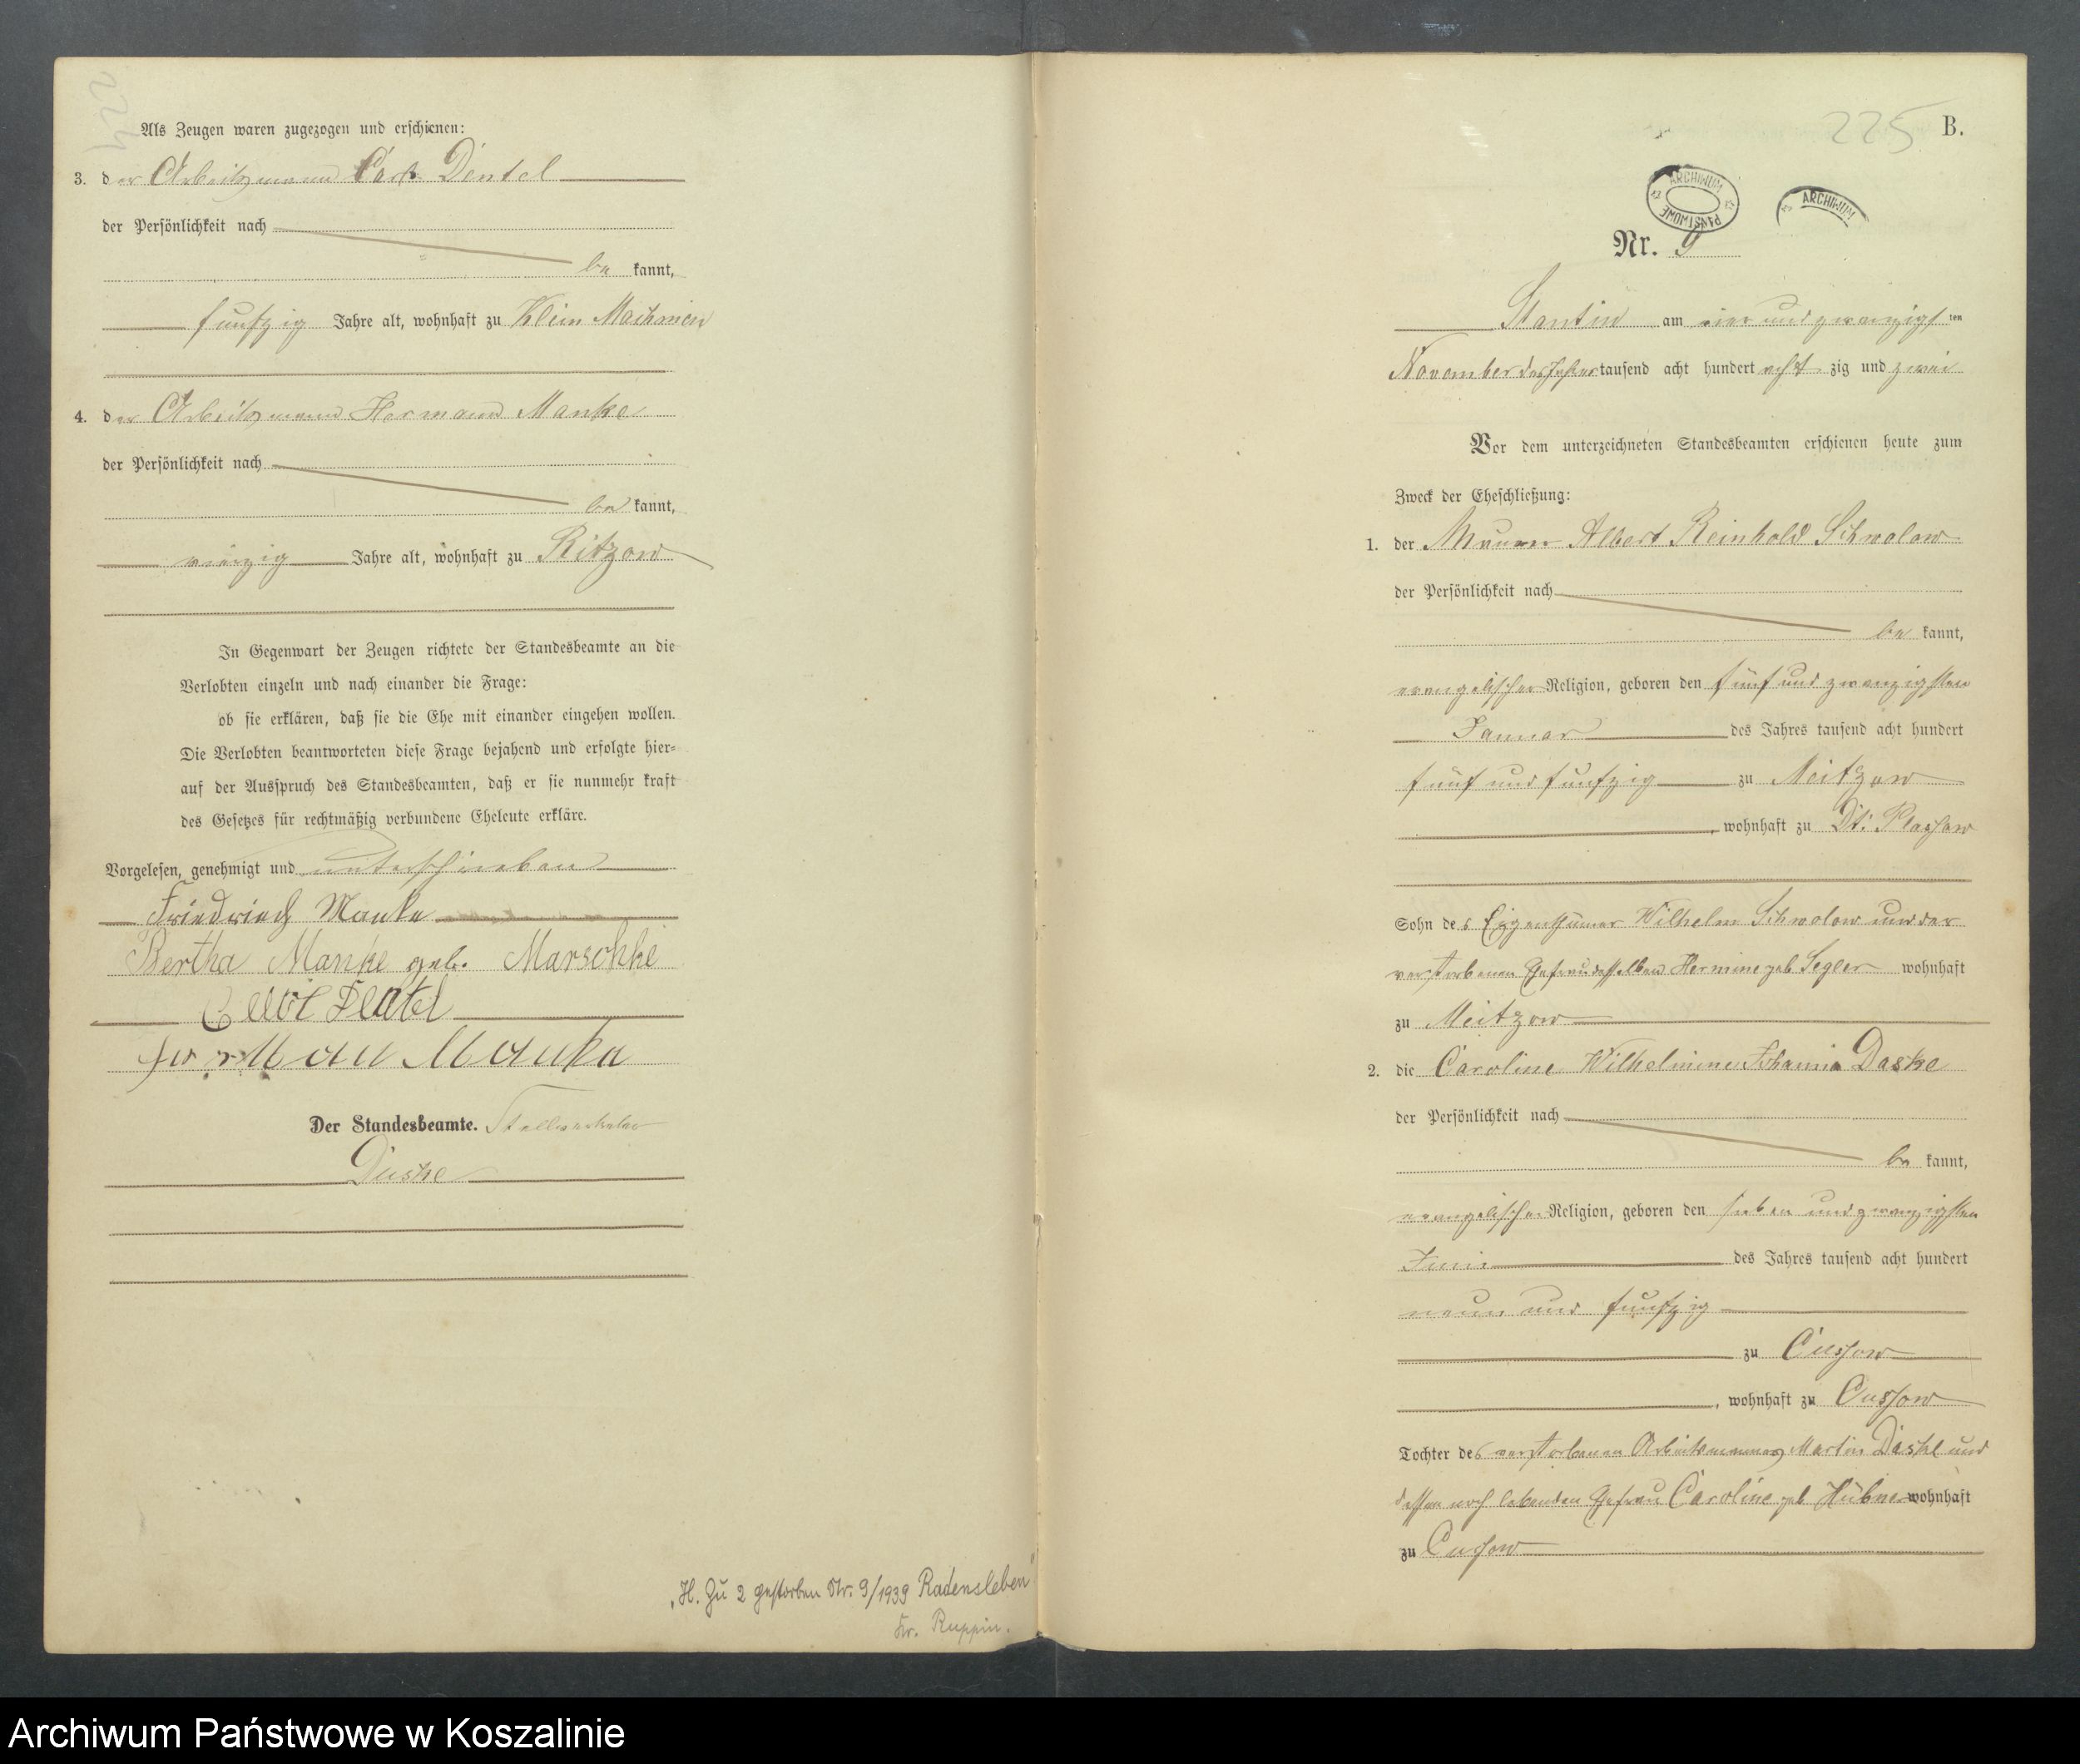 224
Als Zeugen waren zugezogen und erschienen:
3. der Arbeitsmann Carl Dentel
der Persönlichkeit nach
be kannt,
funfzig Jahre alt, wohnhaft zu Klein Machmin
4. der Arbeitsmann Hermann Manke
der Persönlichkeit nach
be kannt,
vierzig Jahre alt, wohnhaft zu Ritzow
In Gegenwart der Zeugen richtete der Standesbeamte an die
Verlobten einzeln und nach einander die Frage:
ob sie erklären, daß sie die Ehe mit einander eingehen wollen.
Die Verlobten beantworteten diese Frage bejahend und erfolgte hier-
auf der Ausspruch des Standesbeamten, daß er sie nunmehr kraft
des Gesetzes für rechtmäßig verbundene Eheleute erkläre.
Vorgelesen, genehmigt und unterschrieben
Friedrich Manke
Bertha Manke geb. Marschke
Carl Dentel
Herman Manke
Der Standesbeamte. Stellvertreter
Duske
"H. Zu 2 gestorben Nr. 9/1939 Radensleben"
Kr. Ruppin.
225 B.
ARCHIWUM PAŃSTWOWE
ARCHIWUM
Nr. 9
Stantin am vier und zwanzigsten
November des Jahres tausend acht hundert acht zig und zwei
Vor dem unterzeichneten Standesbeamten erschienen heute zum
Zweck der Eheschließung:
1. der Maurer Albert Reinhold Schwolow
der Persönlichkeit nach
be kannt,
evangelischer Religion, geboren den fünf und zwanzigsten
Januar des Jahres tausend acht hundert
fünf und funfzig zu Neitzow
, wohnhaft zu Dt: Plassow
Sohn des Eigenthümer Wilhelm Schwolow und der
verstorbenen Ehefrau desselben Hermine geb Segler wohnhaft
zu Neitzow
2. die Caroline Wilhelmine Daske
der Persönlichkeit nach
be kannt,
evangelischer Religion, geboren den sieben und zwanzigsten
Juni des Jahres tausend acht hundert
neun und funfzig
zu Cussow
, wohnhaft zu Cussow
Tochter des verstorbenen Arbeitsmannes Martin Daske und
dessen noch lebenden Ehefrau Caroline geb Hübner wohnhaft
zu Cussow
Archiwum Państwowe w Koszalinie